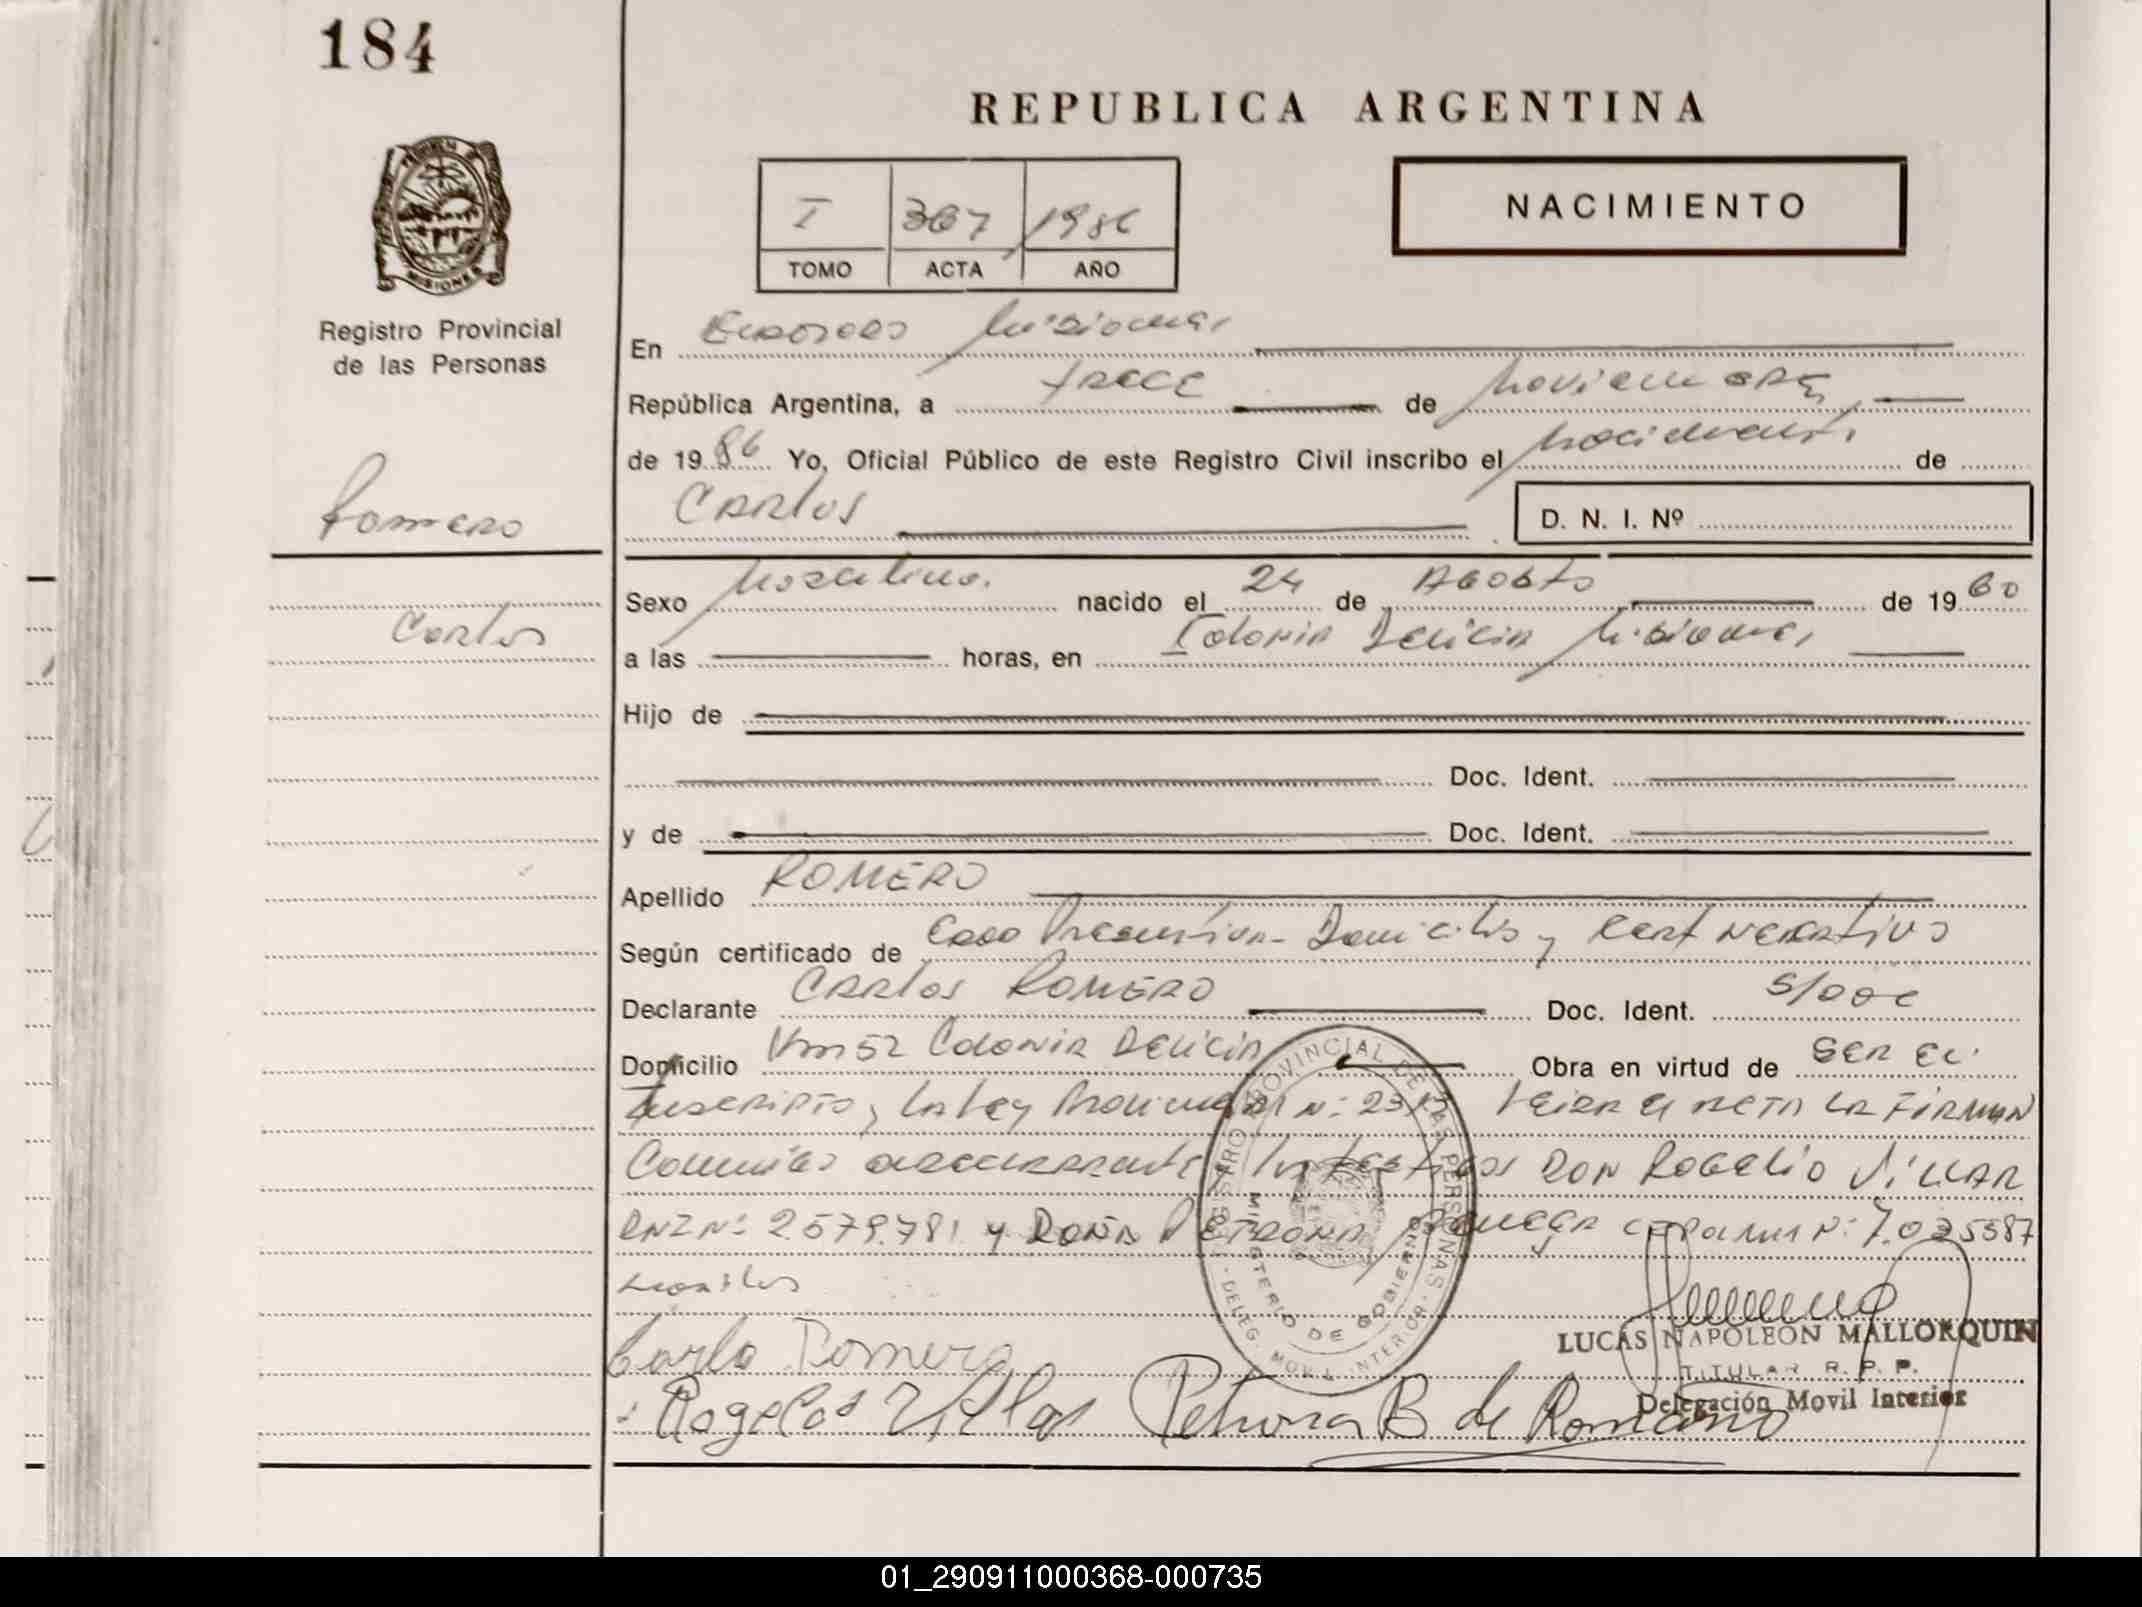 184
REPUBLICA ARGENTINA
NACIMIENTO
I 367 1986
TOMO ACTA AÑO
MISIONES
Registro Provincial
de las Personas
En Eldorado Misiones
República Argentina, a trece de Noviembre
de 1986 Yo, Oficial Público de este Registro Civil inscribo el Nacimiento de
Carlos
D. N. I. Nº
Romero
Carlos
Sexo Masculino. nacido el 24 de Agosto de 1960
a las horas, en Colonia Delicia Misiones
Hijo de
Doc. Ident.
y de Doc. Ident.
Apellido ROMERO
Según certificado de Edad Presuntiva - Domicilio y Cert Negativo
Declarante Carlos ROMERO Doc. Ident. S/Doc
Domicilio Km 52 Colonia Delicia Obra en virtud de ser el
Inscripto y la Ley Provincial Nº 2313 Leida el acta la firman
Conmigo declarante y los testigos Don Rogelio Villar
DNI Nº 2579.781 y Doña Petrona Nº 7.035587
Carlo Romero
Rogelio Villar Petrona B de Romano
REGISTRO PROVINCIAL DE LAS PERSONAS
MINISTERIO DE GOBIERNO
DELEG. MOVIL INTERIOR
LUCAS NAPOLEON MALLORQUIN
TITULAR R. P. P.
Delegación Movil Interior
01_290911000368-000735